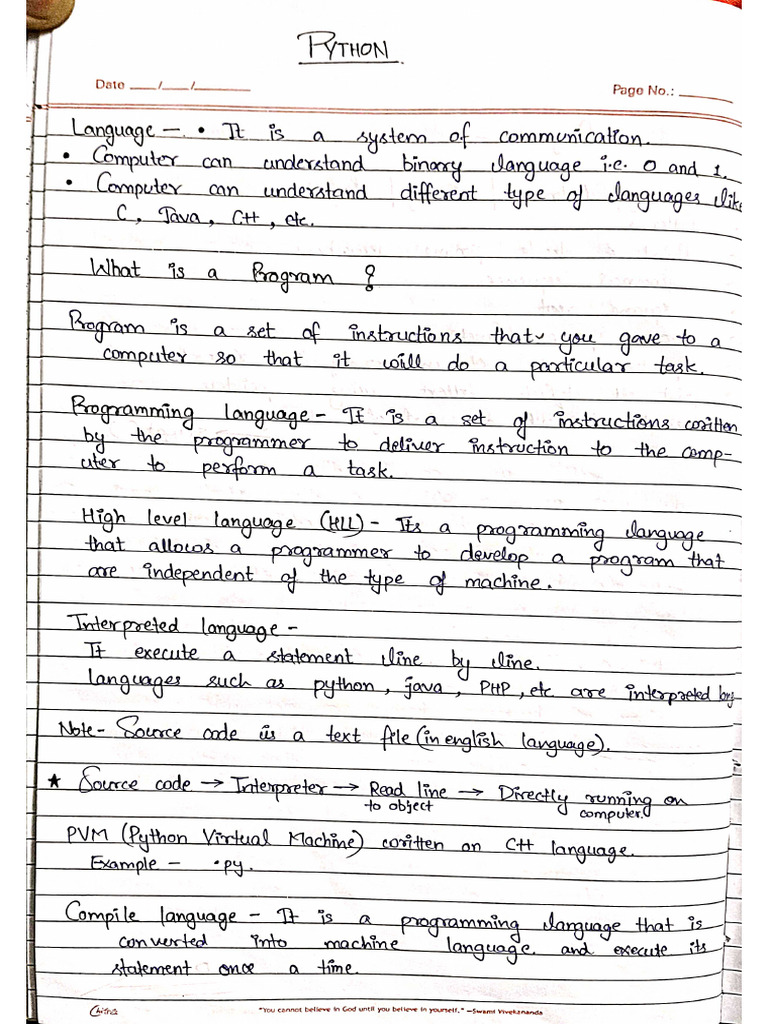 PYTHON
Date ___/___/______ Page No.: ______
Language - • It is a system of communication.
• Computer can understand binary language i.e. 0 and 1.
• Computer can understand different type of languages like
C, Java, C++, etc.
What is a Program ?
Program is a set of instructions that you gave to a
computer so that it will do a particular task.
Programming language - It is a set of instructions written
by the programmer to deliver instruction to the comp-
uter to perform a task.
High level language (HLL) - Its a programming language
that allows a programmer to develop a program that
are independent of the type of machine.
Interpreted language -
It execute a statement line by line.
languages such as python, java, PHP, etc are interpreted
Note - Source code is a text file (in english language).
★ Source code → Interpreter → Read line → Directly running on
to object computer.
PVM (Python Virtual Machine) written on C++ language.
Example - .py.
Compile language - It is a programming language that is
converted into machine language and execute its
statement once a time.
Chitra "You cannot believe in God until you believe in yourself." —Swami Vivekananda